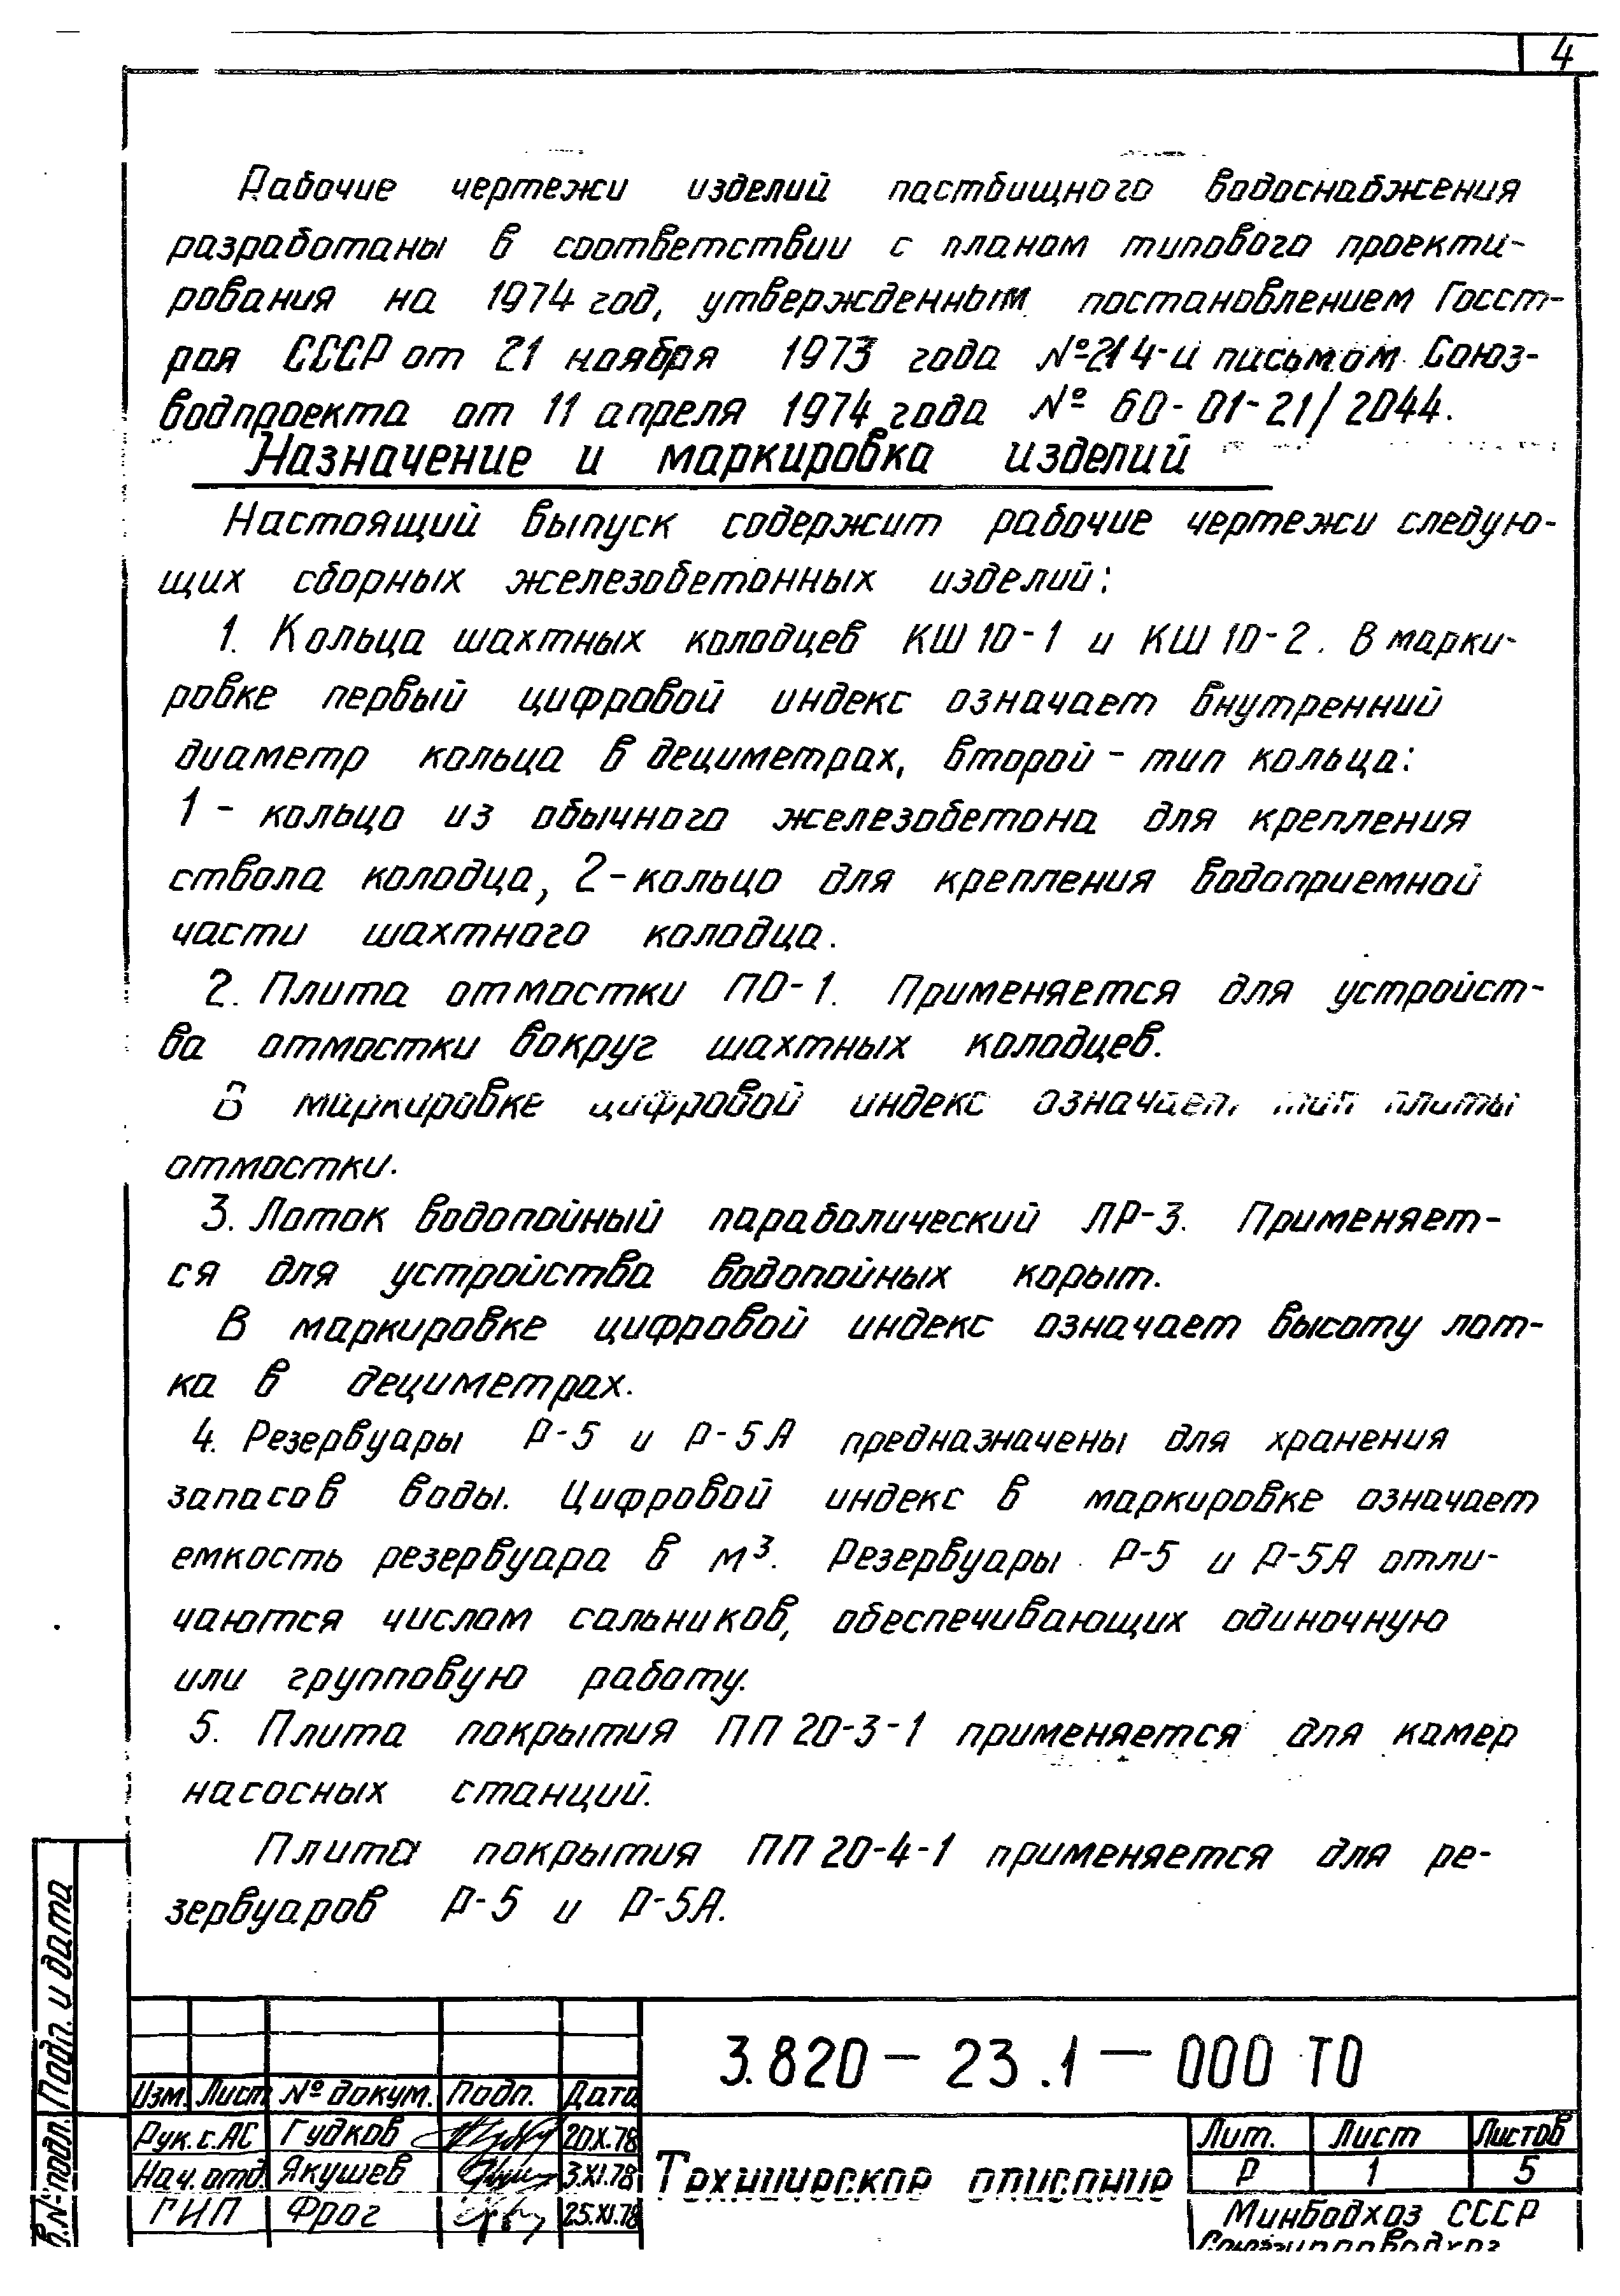 4
Рабочие чертежи изделий пастбищного водоснабжения
разработаны в соответствии с планом типового проекти-
рования на 1974 год, утвержденным постановлением Госст-
роя СССР от 21 ноября 1973 года №214 и письмом Союз-
водпроекта от 11 апреля 1974 года № 60-01-21/2044.
Назначение и маркировка изделий
Настоящий выпуск содержит рабочие чертежи следую-
щих сборных железобетонных изделий:
1. Кольца шахтных колодцев КШ10-1 и КШ10-2. В марки-
ровке первый цифровой индекс означает внутренний
диаметр кольца в дециметрах, второй - тип кольца:
1 - кольцо из обычного железобетона для крепления
ствола колодца, 2-кольцо для крепления водоприемной
части шахтного колодца.
2. Плита отмостки ПО-1. Применяется для устройст-
ва отмостки вокруг шахтных колодцев.
В маркировке цифровой индекс означает тип плиты
отмостки.
3. Лоток водопойный параболический ЛР-3. Применяет-
ся для устройства водопойных корыт.
В маркировке цифровой индекс означает высоту лот-
ка в дециметрах.
4. Резервуары Р-5 и Р-5А предназначены для хранения
запасов воды. Цифровой индекс в маркировке означает
емкость резервуара в м³. Резервуары Р-5 и Р-5А отли-
чаются числом сальников, обеспечивающих одиночную
или групповую работу.
5. Плита покрытия ПП20-3-1 применяется для камер
насосных станций.
Плита покрытия ПП20-4-1 применяется для ре-
зервуаров Р-5 и Р-5А.
Подп. и дата
№ подл.
3.820-23.1-000 ТО
Изм. Лист № докум. Подп. Дата
Рук.с.АС Гудков 20.X.78
Нач.отд. Якушев 3.XI.78
ГИП Фрог 25.XI.78
Техническое описание
Лит. Лист Листов
Р 1 5
Минводхоз СССР
Союзгипроводхоз